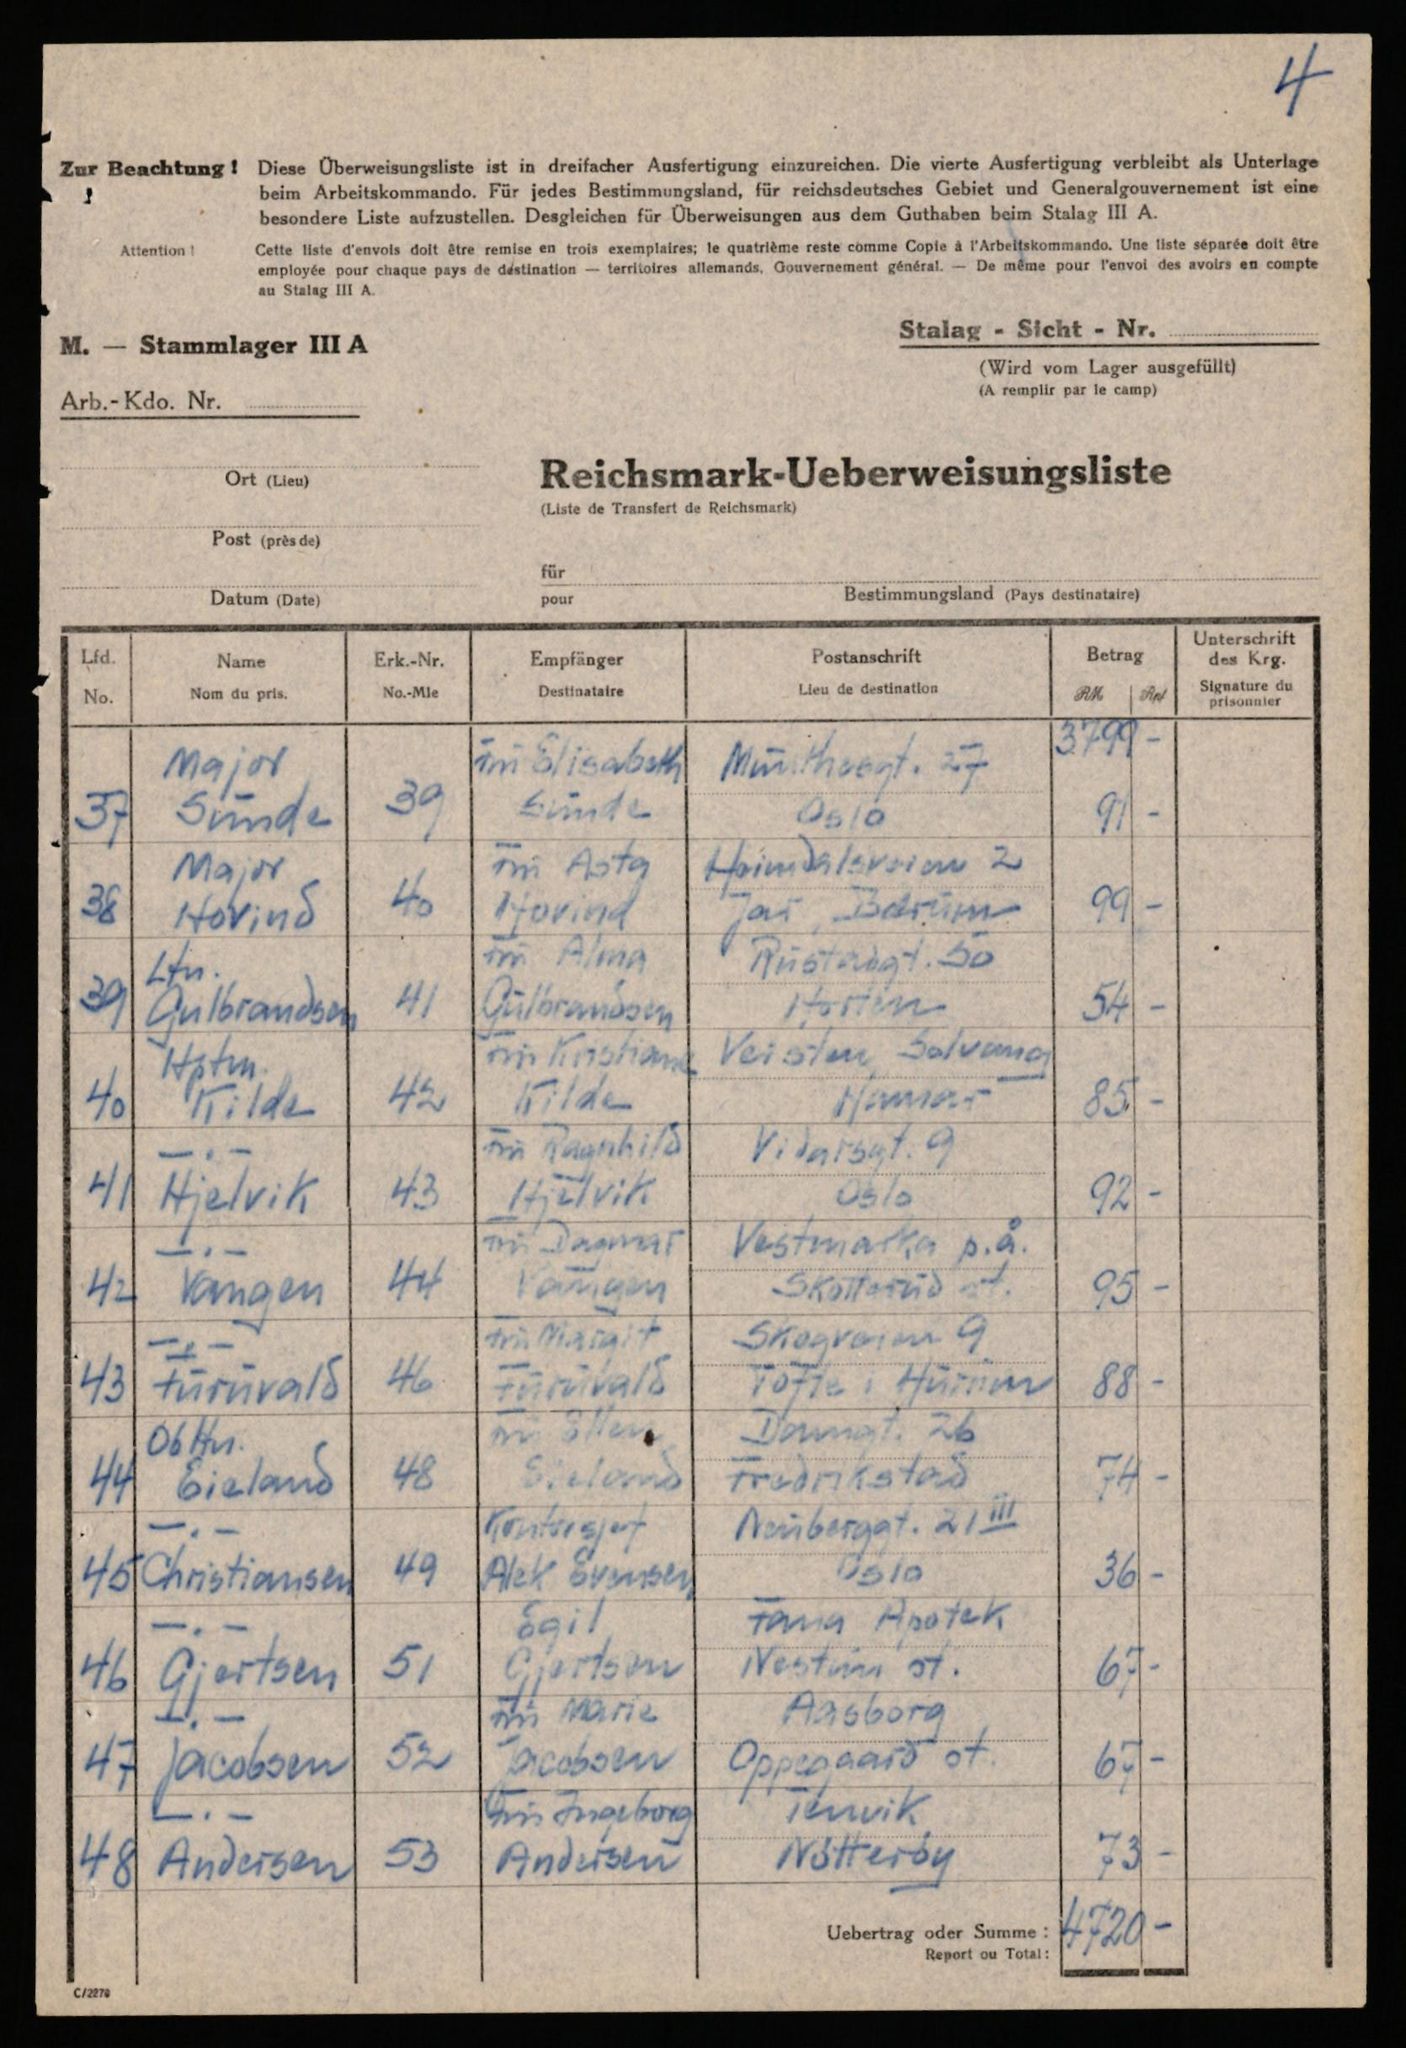 4
Zur Beachtung! Diese Überweisungsliste ist in dreifacher Ausfertigung einzureichen. Die vierte Ausfertigung verbleibt als Unterlage
beim Arbeitskommando. Für jedes Bestimmungsland, für reichsdeutsches Gebiet und Generalgouvernement ist eine
besondere Liste aufzustellen. Desgleichen für Überweisungen aus dem Guthaben beim Stalag III A.
Attention! Cette liste d'envois doit être remise en trois exemplaires; le quatrième reste comme Copie à l'Arbeitskommando. Une liste séparée doit être
employée pour chaque pays de destination — territoires allemands, Gouvernement général. — De même pour l'envoi des avoirs en compte
au Stalag III A.
Stalag - Sicht - Nr.
M. — Stammlager III A
(Wird vom Lager ausgefüllt)
(A remplir par le camp)
Arb.-Kdo. Nr.
Ort (Lieu)
Reichsmark-Ueberweisungsliste
(Liste de Transfert de Reichsmark)
Post (près de)
für
pour
Bestimmungsland (Pays destinataire)
Datum (Date)
Lfd. Name Erk.-Nr. Empfänger Postanschrift Betrag Unterschrift des Krg.
No. Nom du pris. No.-Mle Destinataire Lieu de destination RM Rpf Signature du prisonnier
3799 -
Major Frü Elisabeth Munthesgt. 27
37 Sünde 39 Sünde Oslo 91 -
Major Frü Asta Heimdalsveien 2
38 Hovind 40 Hovind Jar, Bærüm 99 -
Ltn. Frü Alma Rüstadgt. 50
39 Gülbrandsen 41 Gülbrandsen Horten 54 -
Hptm. Frü Kristiane Veisten, Solvang
40 Kilde 42 Kilde Hamar 85 -
—.— Frü Ragnhild Vidarsgt. 9
41 Hjelvik 43 Hjelvik Oslo 92 -
—.— Frü Dagmar Vestmarka p.å.
42 Vangen 44 Vangen Skotterüd st. 95 -
—.— Frü Margit Skogveien 9
43 Fürüvald 46 Fürüvald Tofte i Hürüm 88 -
Obltn. Frü Ellen Damgt. 26
44 Eieland 48 Eieland Fredrikstad 74 -
—.— Kontorsjef Neüberggt. 21 III
45 Christiansen 49 Alek Evensen Oslo 36 -
—.— Egil Fana Apotek
46 Gjertsen 51 Gjertsen Nestün st. 67 -
—.— Frü Marie Aasborg
47 Jacobsen 52 Jacobsen Oppegaard st. 67 -
—.— Frü Ingeborg Tenvik
48 Andersen 53 Andersen Nötteröy 73 -
Uebertrag oder Summe: 4720 -
Report ou Total:
C/2270